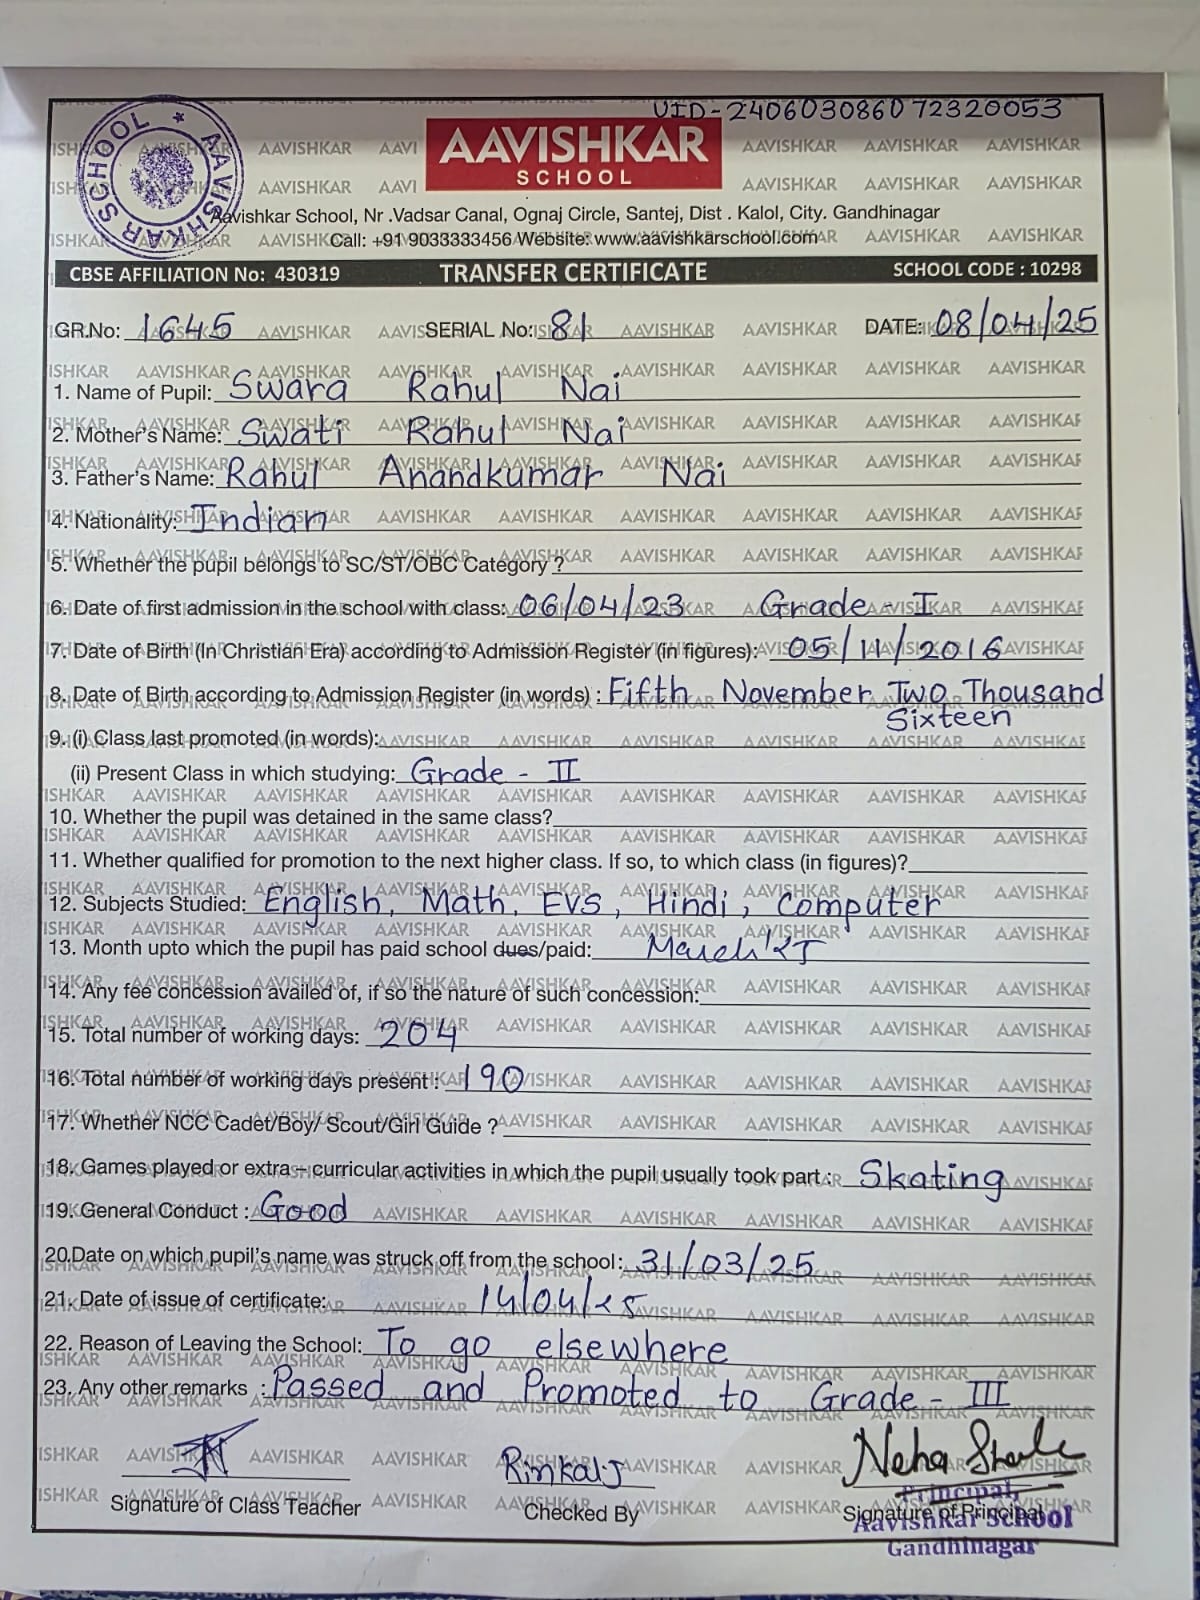 UID-240603086072320053
AAVISHKAR SCHOOL
AAVISHKAR
SCHOOL
Aavishkar School, Nr .Vadsar Canal, Ognaj Circle, Santej, Dist . Kalol, City. Gandhinagar
Call: +91 9033333456 Website: www.aavishkarschool.com
CBSE AFFILIATION No: 430319 TRANSFER CERTIFICATE SCHOOL CODE : 10298
GR.No: 1645 SERIAL No: 81 DATE: 08/04/25
1. Name of Pupil: Swara Rahul Nai
2. Mother's Name: Swati Rahul Nai
3. Father's Name: Rahul Anandkumar Nai
4. Nationality: Indian
5. Whether the pupil belongs to SC/ST/OBC Category ?
6. Date of first admission in the school with class: 06/04/23 Grade - I
7. Date of Birth (In Christian Era) according to Admission Register (in figures): 05/11/2016
8. Date of Birth according to Admission Register (in words) : Fifth November Two Thousand
Sixteen
9. (i) Class last promoted (in words):
(ii) Present Class in which studying: Grade - II
10. Whether the pupil was detained in the same class?
11. Whether qualified for promotion to the next higher class. If so, to which class (in figures)?
12. Subjects Studied: English, Math, EVS, Hindi, Computer
13. Month upto which the pupil has paid school dues/paid: March'25
14. Any fee concession availed of, if so the nature of such concession:
15. Total number of working days: 204
16. Total number of working days present : 190
17. Whether NCC Cadet/Boy/ Scout/Girl Guide ?
18. Games played or extra – curricular activities in which the pupil usually took part : Skating
19. General Conduct : Good
20.Date on which pupil's name was struck off from the school: 31/03/25
21. Date of issue of certificate: 14/04/25
22. Reason of Leaving the School: To go elsewhere
23. Any other remarks : Passed and Promoted to Grade - III
Rinkal.J Neha
Signature of Class Teacher Checked By Signature of Principal
Principal,
Aavishkar School
Gandhinagar